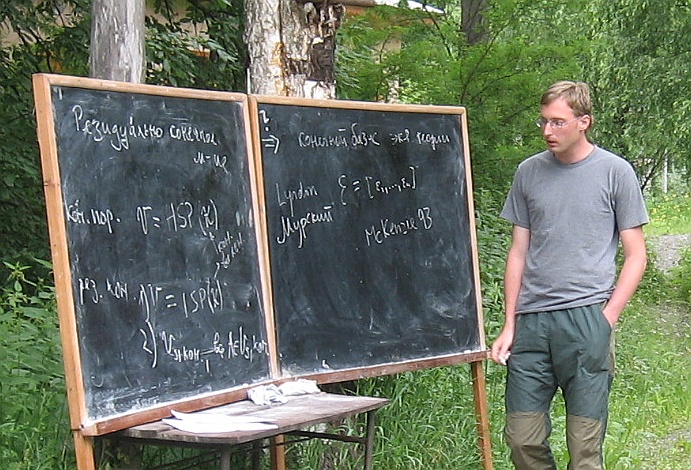 Резидуально конечное
м-ие
Кон. пор. V = HSP(K)
рез. кон. 1) V = ISP(K)
2)
?
⇒ конечный базис экв. теории
Lyndon Σ = [ε₁,...,εₙ]
Мурский
McKenzie 93